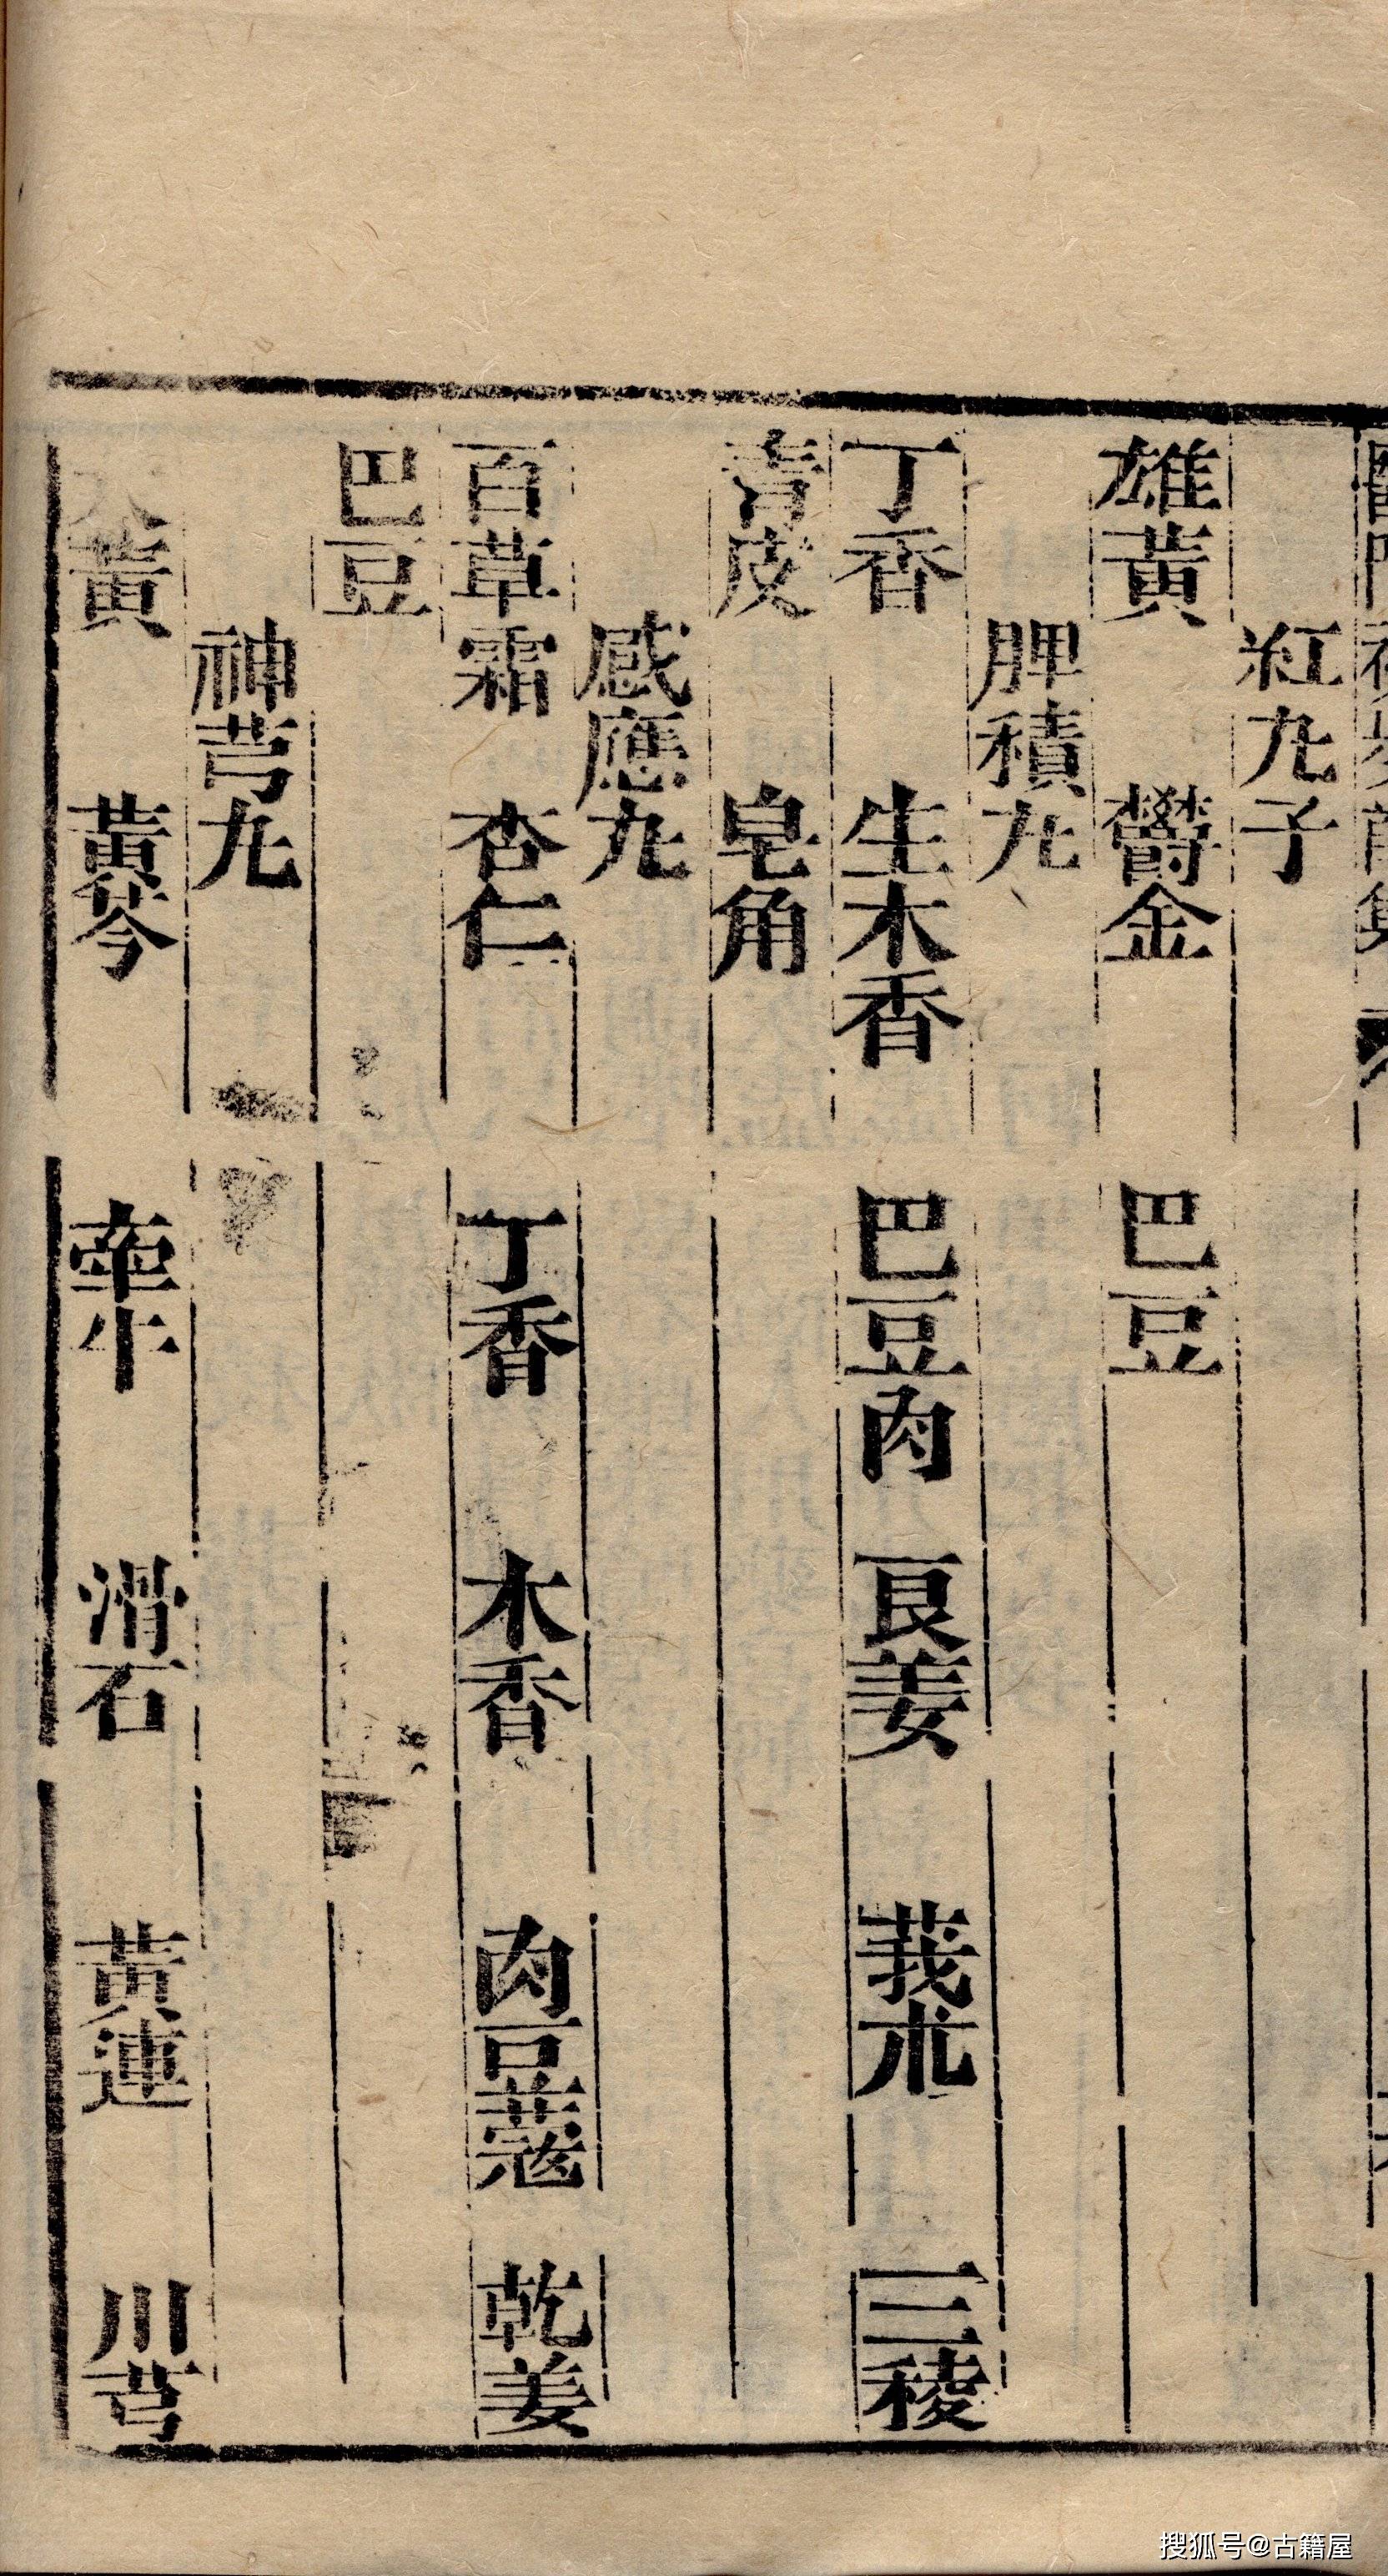 紅丸子
雄黃 鬱金 巴豆
脾積丸
丁香 生木香 巴豆肉 良姜 莪朮 三稜
青皮 皂角
感應丸
百草霜 杏仁 丁香 木香 肉豆蔻 乾姜
巴豆
神芎丸
黃 黃芩 牽牛 滑石 黃連 川芎
搜狐号@古籍屋